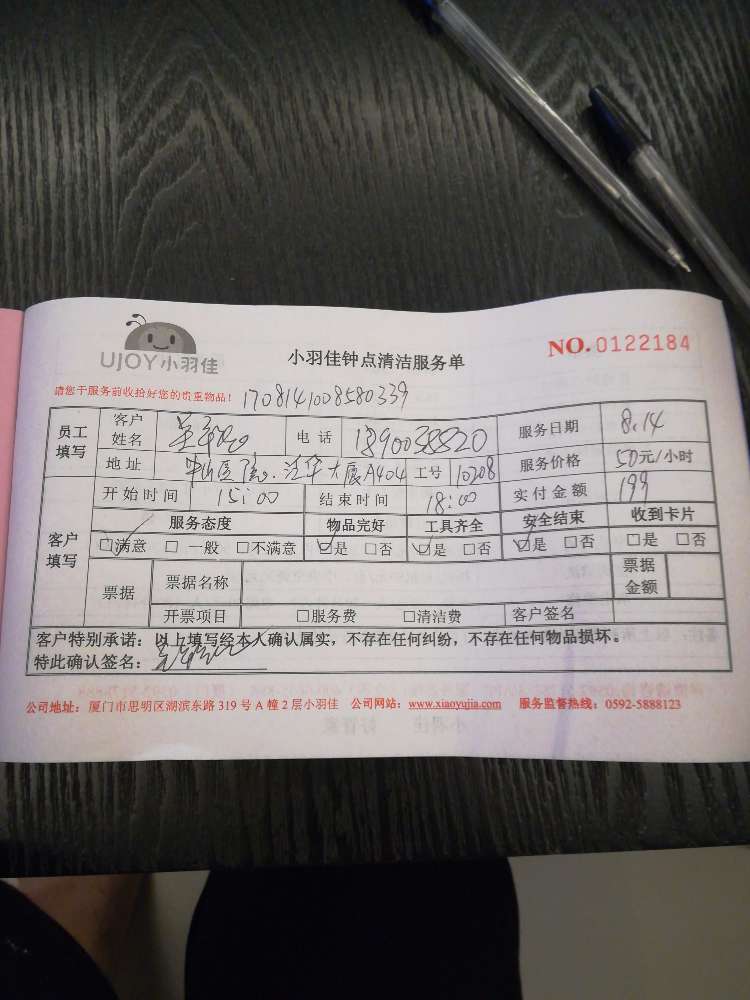 UJOY小羽佳
小羽佳钟点清洁服务单
NO.0122184
请您于服务前收拾好您的贵重物品！
1708141008580339
员工填写 客户姓名 电话 服务日期 8.14
地址 大厦A404 工号 10208 服务价格 50元/小时
客户填写 开始时间 15:00 结束时间 18:00 实付金额 199
服务态度 物品完好 工具齐全 安全结束 收到卡片
☑满意 □一般 □不满意 ☑是 □否 ☑是 □否 ☑是 □否 □是 □否
票据 票据名称 票据金额
开票项目 □服务费 □清洁费 客户签名
客户特别承诺：以上填写经本人确认属实，不存在任何纠纷，不存在任何物品损坏。
特此确认签名：
公司地址：厦门市思明区湖滨东路319号A幢2层小羽佳 公司网站：www.xiaoyujia.com 服务监督热线：0592-5888123